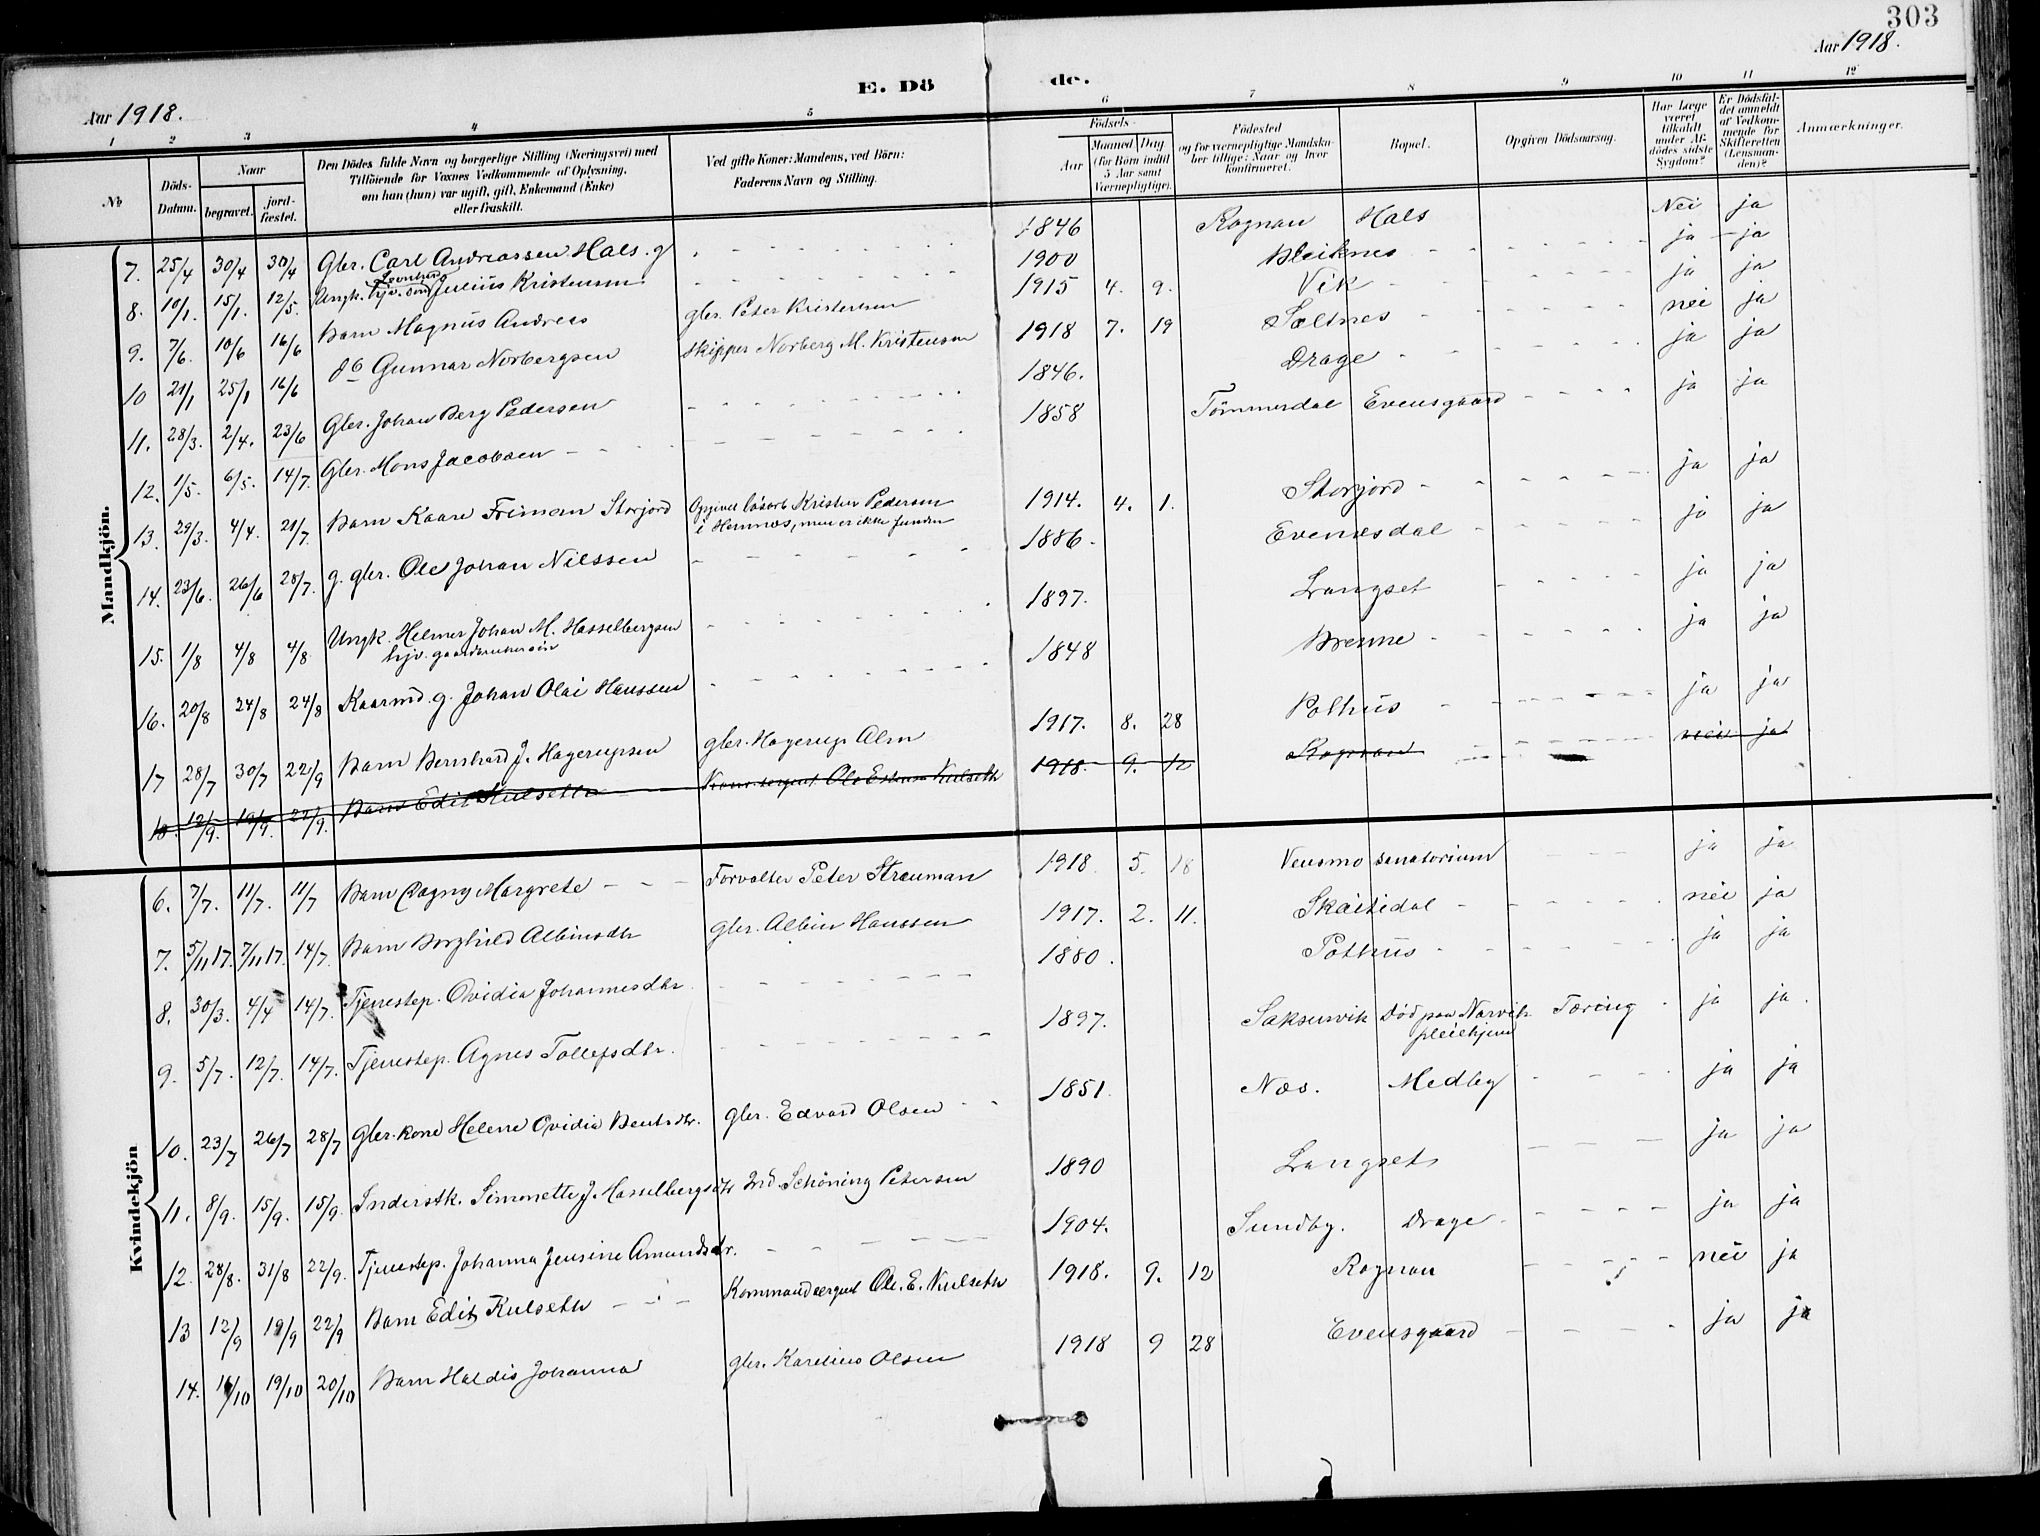 303
Aar 1918.
Aar 1918.
E. Dö de.
1 2 3 4 5 6 7 8 9 10 11 12
No
Döds-Datum.
Naar
begravet.
jord-fæstet.
Den Dödes fulde Navn og borgerlige Stilling (Næringsvei) med
Tilföiende for Voxnes Vedkommende af Oplysning,
om han (hun) var ugift, gift, Enkemand (Enke)
eller fraskilt.
Ved gifte Koner: Mandens, ved Börn:
Faderens Navn og Stilling.
Födsels-
Aar
Maaned Dag
(for Börn indtil
5 Aar samt
Værnepligtige).
Födested
og for værnepligtige Mandska-
ber tillige: Naar og hvor
konfirmeret.
Bopæl.
Opgiven Dödsaarsag.
Har Læge
været
tilkaldt
under Af-
dödes sidste
Sygdom?
Er Dödsfal-
det anmeldt
af Vedkom-
mende for
Skifteretten
(Lensman-
den)?
Anmærkninger.
Mandkjön.
7. 25/4 30/4 30/4 Gbr. Carl Andreassen Hals. g 1846 Rognan Hals Nei ja
8. 10/1. 15/1. 12/5. Ungk. hjv. søn Julius Kristensen 1900 Bleiknes ja ja
9. 7/6. 10/6 16/6 Barn Magnus Andreas gbr. Peter Kristensen 1915 4. 9. Vik ja ja
10 21/1 25/1 16/6 do Gunnar Norbergsen Skipper Norberg M. Kristensen 1918 7. 19 Saltnes nei ja
11. 28/3. 2/4. 23/6 Gbr. Johan Berg Pedersen 1846. Drage ja ja
12. 1/5. 6/5. 14/7. Gbr. Mons Jacobsen 1858 Tømmerdal Evensgaard ja ja
13. 29/3. 4/4. 21/7. Barn Kaare Friman Storjord Opgivet løsarb Kristen Pedersen
i Hemnes, men er ikke funden 1914. 4. 1. Storjord ja ja
14. 23/6. 26/6 28/7. g. gbr. Ole Johan Nilssen 1886. Evenesdal ja ja
15. 1/8 4/8 4/8 Ungk. Helmer Johan M. Hasselbergsen
hjv. gaardbrukersøn 1897. Langset ja ja
16. 20/8 24/8 24/8 Kaarmd. g. Johan Olai Hanssen 1848 Brenne ja ja
17 28/7 30/7 22/9 Barn Bernhard J. Hagerupsen gbr. Hagerup Alm 1917. 8. 28 Pothus ja ja
18. 12/9. 19/9. 22/9. Barn Edit Kulseth Kom. sergent Ole E. Kulseth 1918. 9. 12 Rognan nei ja
Kvindekjön
6. 7/7. 11/7. 11/7 Barn Ragny Margrete Forvalter Peter Strauman 1918 5. 18 Vensmo sanatorium ja ja
7. 5/11 17. 7/11 17. 14/7. Barn Borghild Albinsdtr gbr. Albin Hanssen 1917. 2. 11. Skaitidal nei ja
8. 30/3. 4/4 14/7. Tjenestep. Ovidia Johannesdtr 1880. Pothus ja ja
9. 5/7. 12/7. 14/7. Tjenestep. Agnes Tollefsdtr. 1897. Saksenvik Død paa Narvik
pleiehjem Tæring ja ja.
10. 23/7 26/7 28/7 Gbr. kone Helene Ovidia Bentsdtr. gbr. Edvard Olsen 1851. Næs. Medby ja ja
11. 8/9. 15/9. 15/9. Inderstk. Simonette J. Hasselbergsdtr Ind. Schöning Petersen 1890 Langset ja ja
12. 28/8. 31/8 22/9. Tjenestep. Johanna Jensine Amundsdtr. 1904. Sundby. Drage ja ja
13 12/9 19/9 22/9 Barn Edit Kulseth Kommandsergent Ole. E. Kulseth 1918. 9. 12 Rognan nei ja
14. 16/10 19/10 20/10 Barn Haldis Johanna gbr. Karelius Olsen 1918 9 28 Evensgaard ja ja